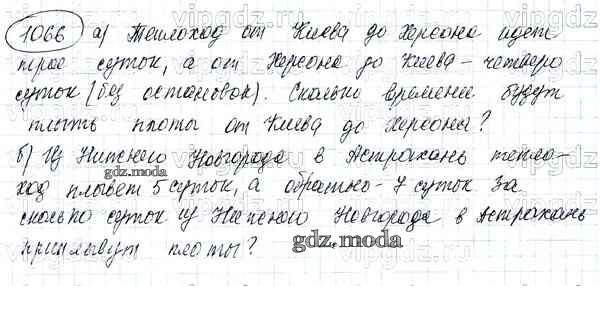 1066 а) Теплоход от Киева до Херсона идет
трое суток, а от Херсона до Киева - четверо
суток (без остановок). Сколько времени будут
плыть плоты от Киева до Херсона?
б) Из Нижнего Новгорода в Астрахань тепло-
gdz.moda
ход плывет 5 суток, а обратно - 7 суток. За
сколько суток из Нижнего Новгорода в Астрахань
gdz.moda
приплывут плоты?